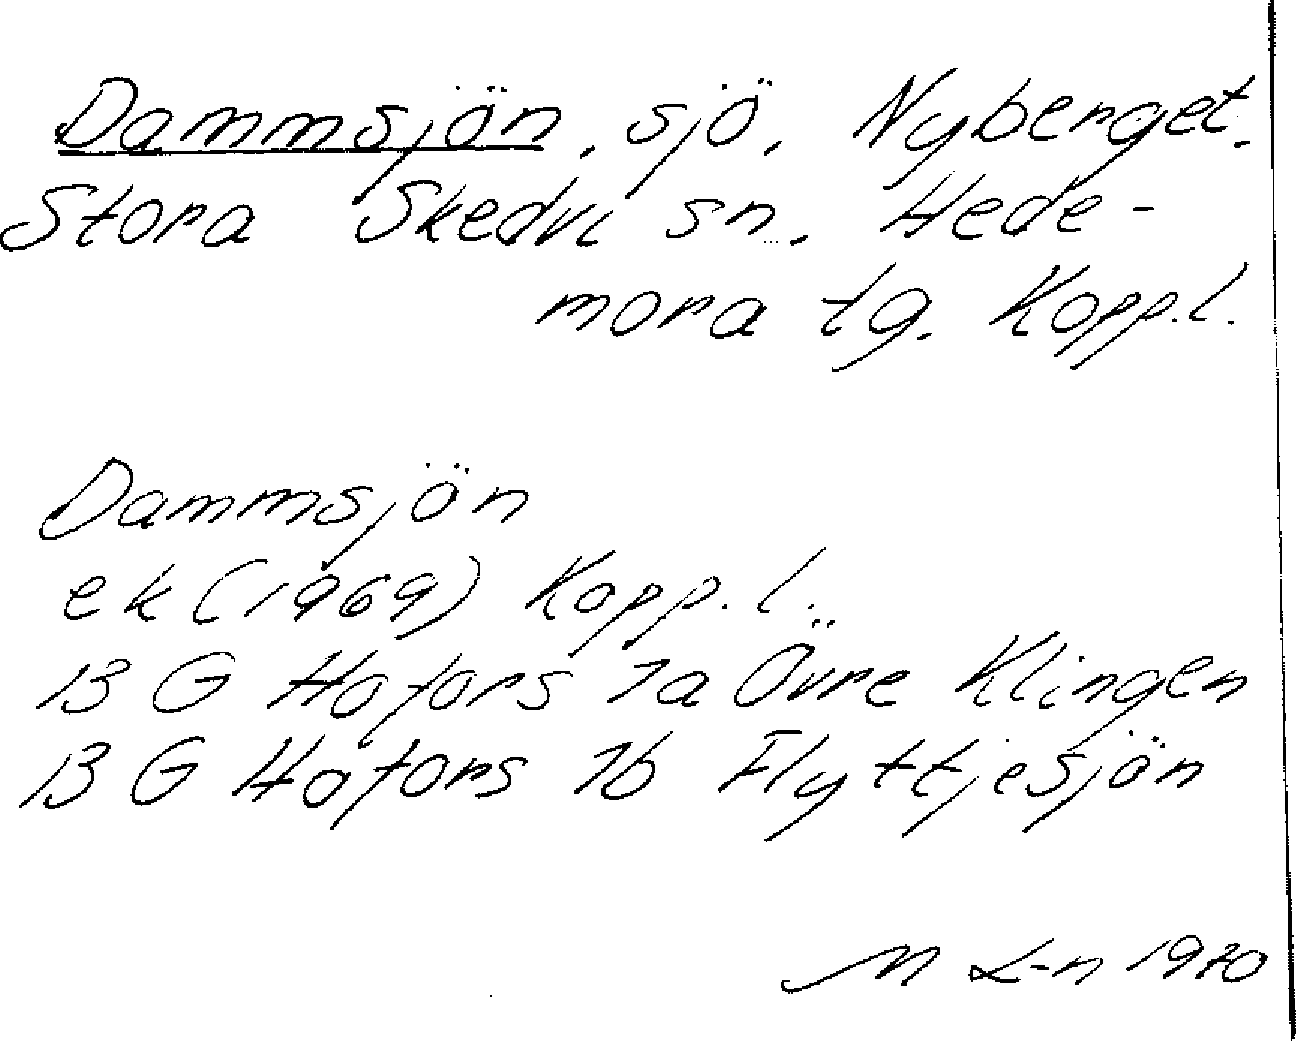 Dammsjön, sjö, Nyberget.
Stora Skedvi sn. Hede-
mora tg. Kopp.l.
Dammsjön
ek (1969) Kopp. l.
13 G Hofors 1a Övre Klingen
13 G Hofors 1b Flyttjesjön
M L-n 1970